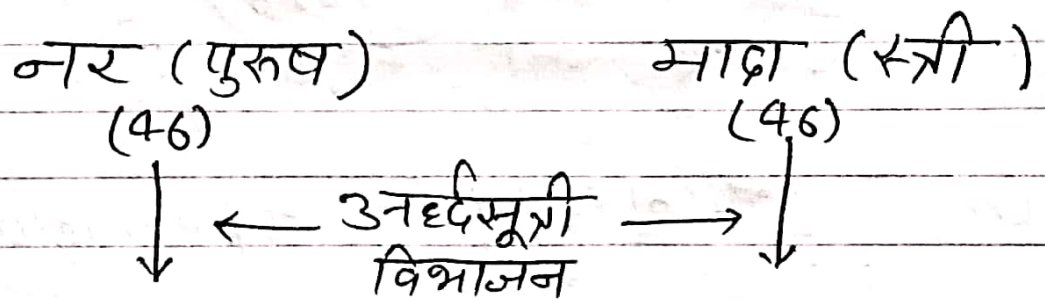 नर (पुरुष) मादा (स्त्री)
(46) (46)
← अर्द्धसूत्री →
विभाजन